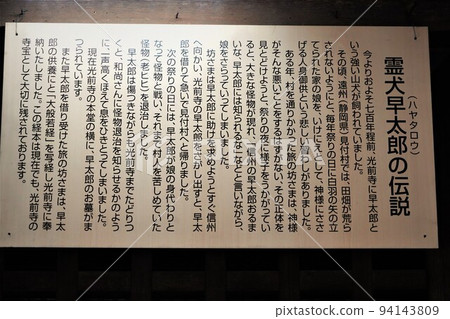 霊犬早太郎の伝説
（ハヤタロウ）
今よりおよそ七百年程前、光前寺に早太郎と
いう強い山犬が飼われていました。
その頃、遠州（静岡県）見付村では、田畑が荒ら
されないようにと、毎年祭りの日に白羽の矢の立
てられた家の娘を、いけにえとして神様にささ
げる人身御供という悲しいしきたりがありました。
ある年、村を通りかかった旅の坊さまは、神様
がそんな悪いことをするはずがない、その正体を
見とどけようと祭りの夜に様子をうかがってい
ると、大きな怪物が現れ、『信州の早太郎おるま
いな、早太郎には知られるな』などと言いながら、
娘をさらっていってしまいました。
坊さまは早太郎に助けを求めようとすぐ信州
へ向かい、光前寺の早太郎をさがし出すと、早太
郎を借りて急いで見付村へと帰りました。
次の祭りの日には、早太郎が娘の身代わりと
なって怪物と戦い、それまで村人を苦しめていた
怪物（老ヒヒ）を退治しました。
早太郎は傷つきながらも光前寺までたどりつ
くと、和尚さんに怪物退治を知らせるかのよう
に、一声高くほえて息をひきとってしまいました。
現在光前寺の本堂の横に、早太郎のお墓がま
つられています。
また早太郎を借り受けた旅の坊さまは、早太
郎の供養にと『大般若経』を写経し光前寺に奉
納いたしました。この経本は現在でも、光前寺の
寺宝として大切に残されております。
pixta.jp - 94143809